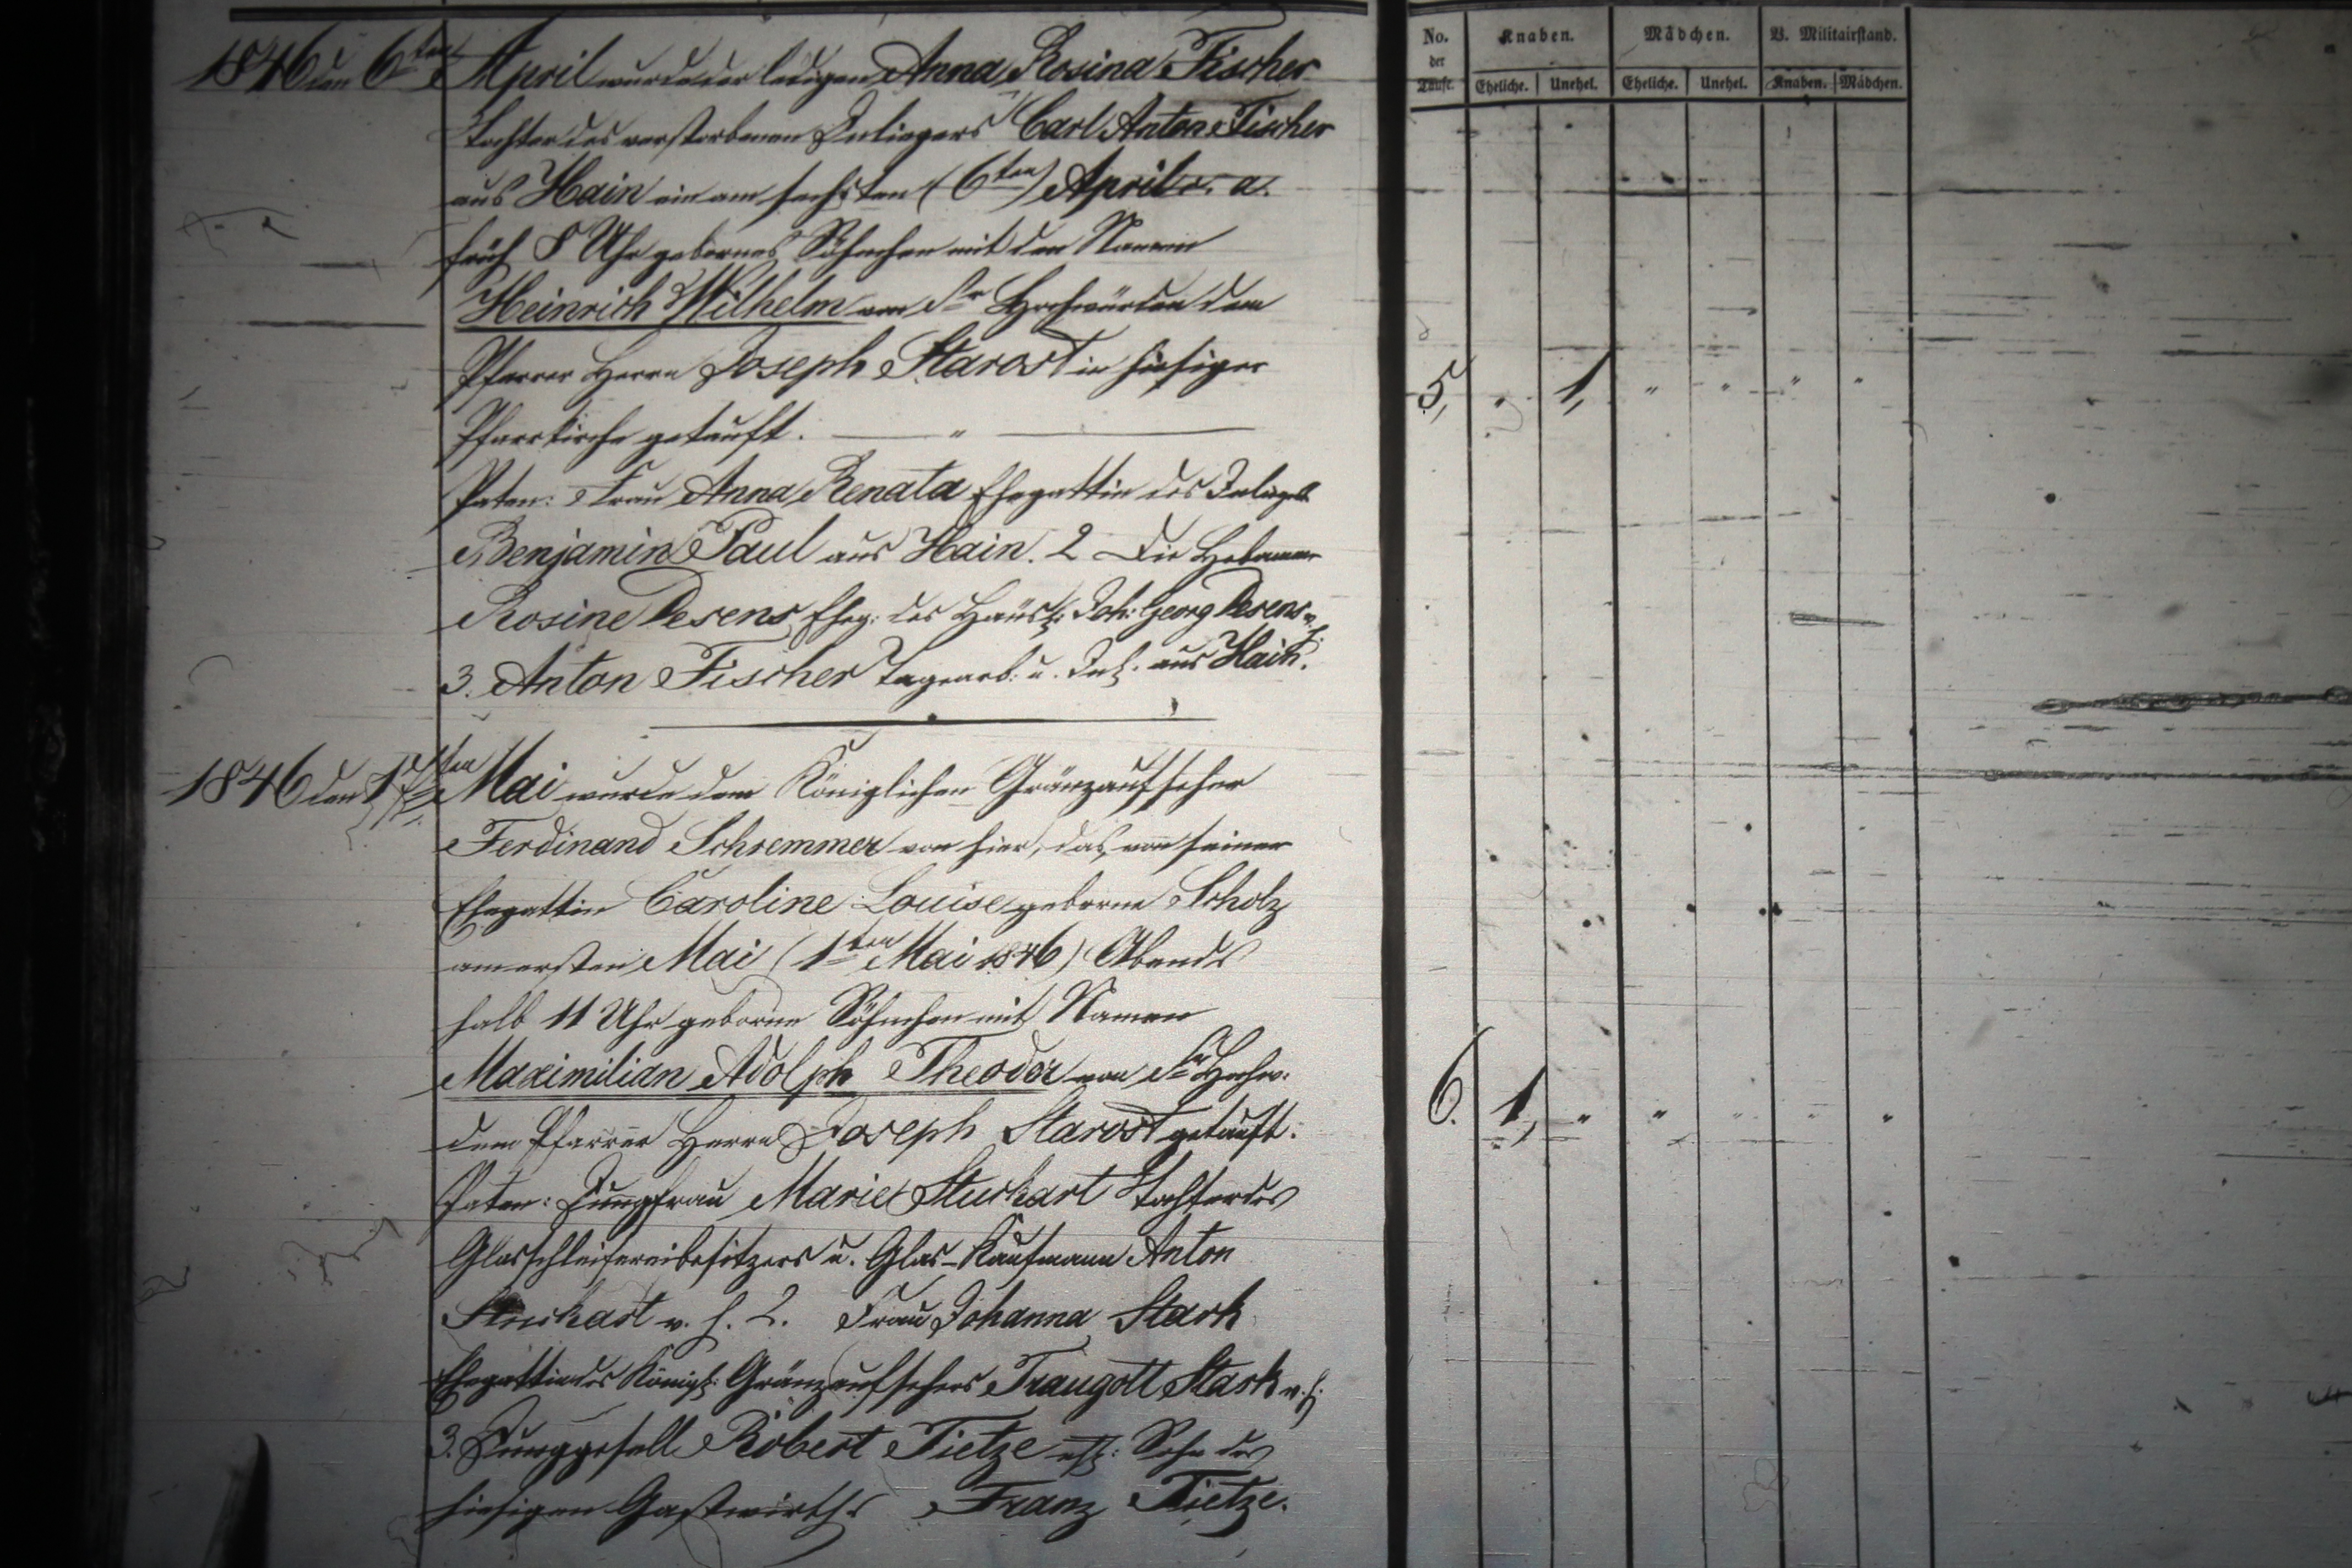 No. der Taufe. | Knaben. | Mädchen. | V. Militairstand.
Eheliche. | Unehel. | Eheliche. | Unehel. | Knaben. | Mädchen.
1846 den 6ten April wurde der ledigen Anna Rosina Fischer
Tochter des verstorbenen Inliegers Carl Anton Fischer
aus Hain ein am sechsten (6ten) April c. a.
früh 8 Uhr gebornes Söhnchen mit den Namen
Heinrich Wilhelm von Sr Hochwürden dem
Pfarrer Herrn Joseph Starost in hiesiger
5, " 1, " " " "
Pfarrkirche getauft. — " —
Paten: Frau Anna Renata Ehegattin des Inliegers
Benjamin Paul aus Hain. 2 Die Hebamme
Rosine Desens Eheg: des Häusl: Joh: Georg Desens v. h.
3. Anton Fischer Tagearb: u. Inl: aus Hain.
1846 den Mai wurde dem Königlichen Gränzaufseher
Ferdinand Schremmer von hier, das von seiner
Ehegattin Caroline Louise geborne Scholz
am ersten Mai (1ten Mai 1846) Abends
halb 11 Uhr geborne Söhnchen mit Namen
Maximilian Adolph Theodor von Sr Hochw:
dem Pfarrer Herrn Joseph Starost getauft.
6. 1, " " " " "
Paten: Jungfrau Marie Stuckart Tochter des
Glasschleifereibesitzers u. Glas-Kaufmann Anton
Stuckart v. h. 2. Frau Johanna Stark
Ehegattin des Königl: Gränzaufsehers Traugott Stark v. h.
3. Junggesell Robert Tietze ehl: Sohn des
hiesigen Gastwirths Franz Tietze.